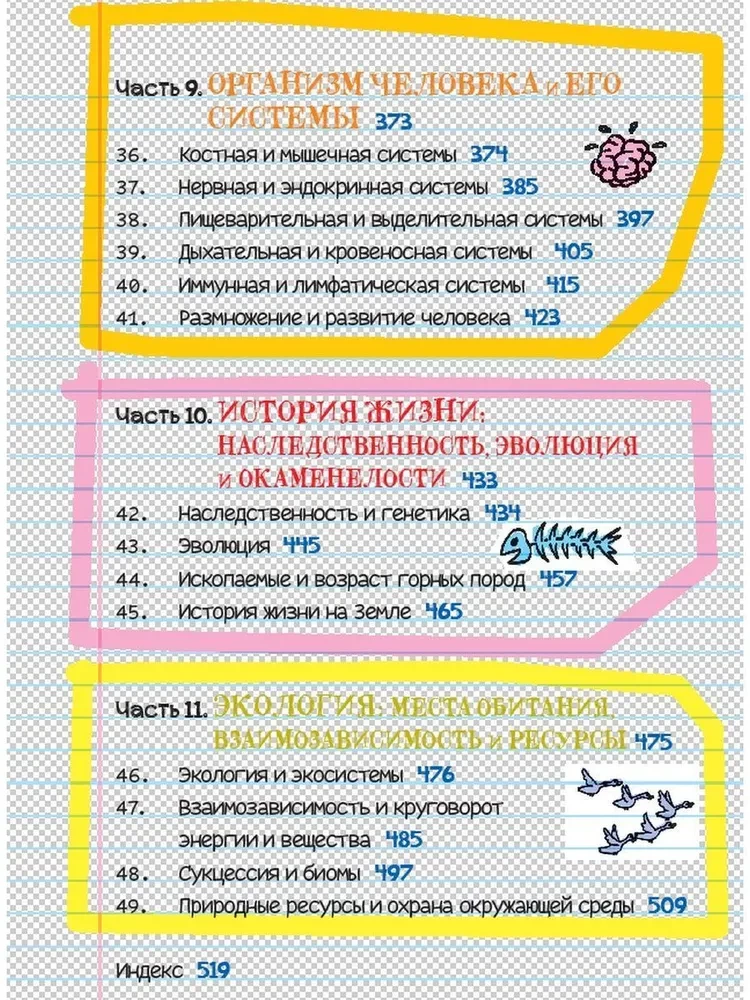 Часть 9. ОРГАНИЗМ ЧЕЛОВЕКА и ЕГО
СИСТЕМЫ 373
36. Костная и мышечная системы 374
37. Нервная и эндокринная системы 385
38. Пищеварительная и выделительная системы 397
39. Дыхательная и кровеносная системы 405
40. Иммунная и лимфатическая системы 415
41. Размножение и развитие человека 423
Часть 10. ИСТОРИЯ ЖИЗНИ:
НАСЛЕДСТВЕННОСТЬ, ЭВОЛЮЦИЯ
и ОКАМЕНЕЛОСТИ 433
42. Наследственность и генетика 434
43. Эволюция 445
44. Ископаемые и возраст горных пород 457
45. История жизни на Земле 465
Часть 11. ЭКОЛОГИЯ: МЕСТА ОБИТАНИЯ,
ВЗАИМОЗАВИСИМОСТЬ и РЕСУРСЫ 475
46. Экология и экосистемы 476
47. Взаимозависимость и круговорот
энергии и вещества 485
48. Сукцессия и биомы 497
49. Природные ресурсы и охрана окружающей среды 509
Индекс 519